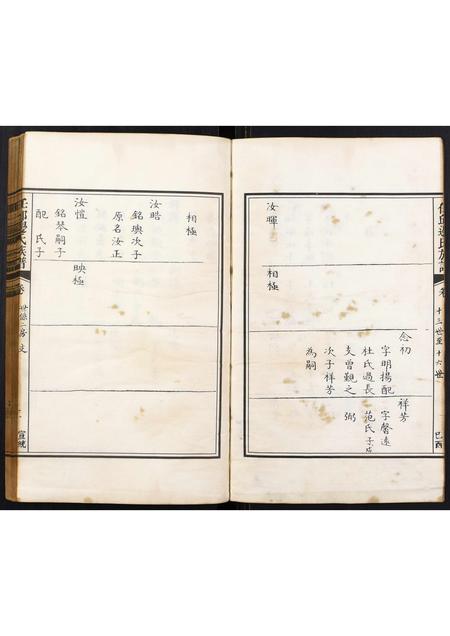 任邱邊氏族譜
卷
十三世至十六世
己酉
念初
字明揚配
杜氏過長
支曾覲之
次子祥芳
為嗣
祥芳
字馨遠
范氏子
弼
汝暉
相極
相極
汝晧
銘輿次子
原名汝正
汝愷
銘琴嗣子
配 氏子
映極
任邱邊氏族譜
卷
世系二房 支
宣統